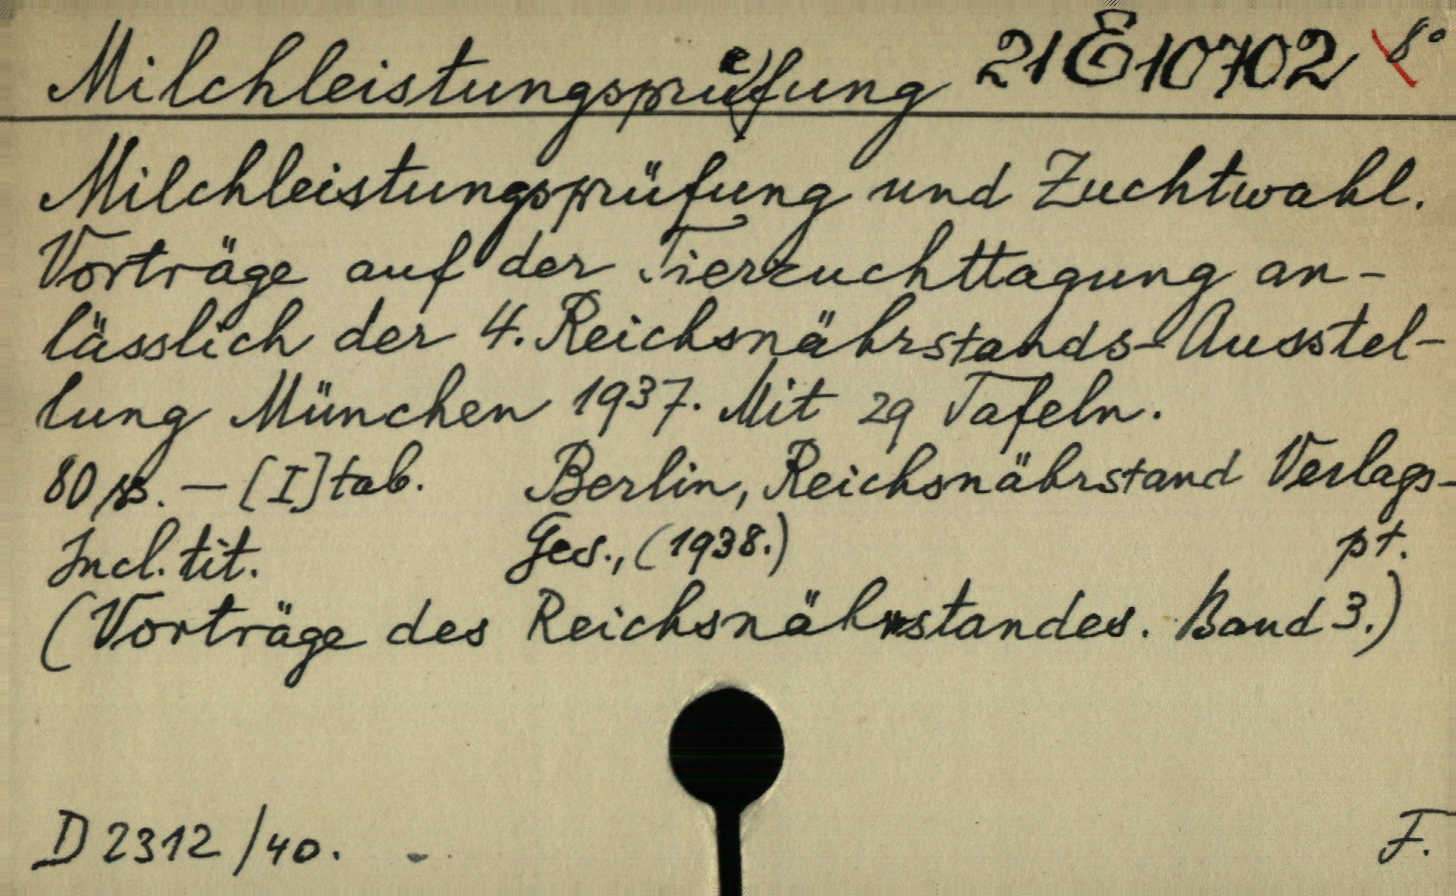 Milchleistungspruefung 21 E 10702 8°
Milchleistungsprüfung und Zuchtwahl.
Vorträge auf der Tierzuchttagung an-
lässlich der 4. Reichsnährstands-Ausstel-
lung München 1937. Mit 29 Tafeln.
80 p. — [I] tab. Berlin, Reichsnährstand Verlags-
Incl. tit. Ges., (1938.) pt.
(Vorträge des Reichsnährstandes. Band 3.)
D 2312/40. F.